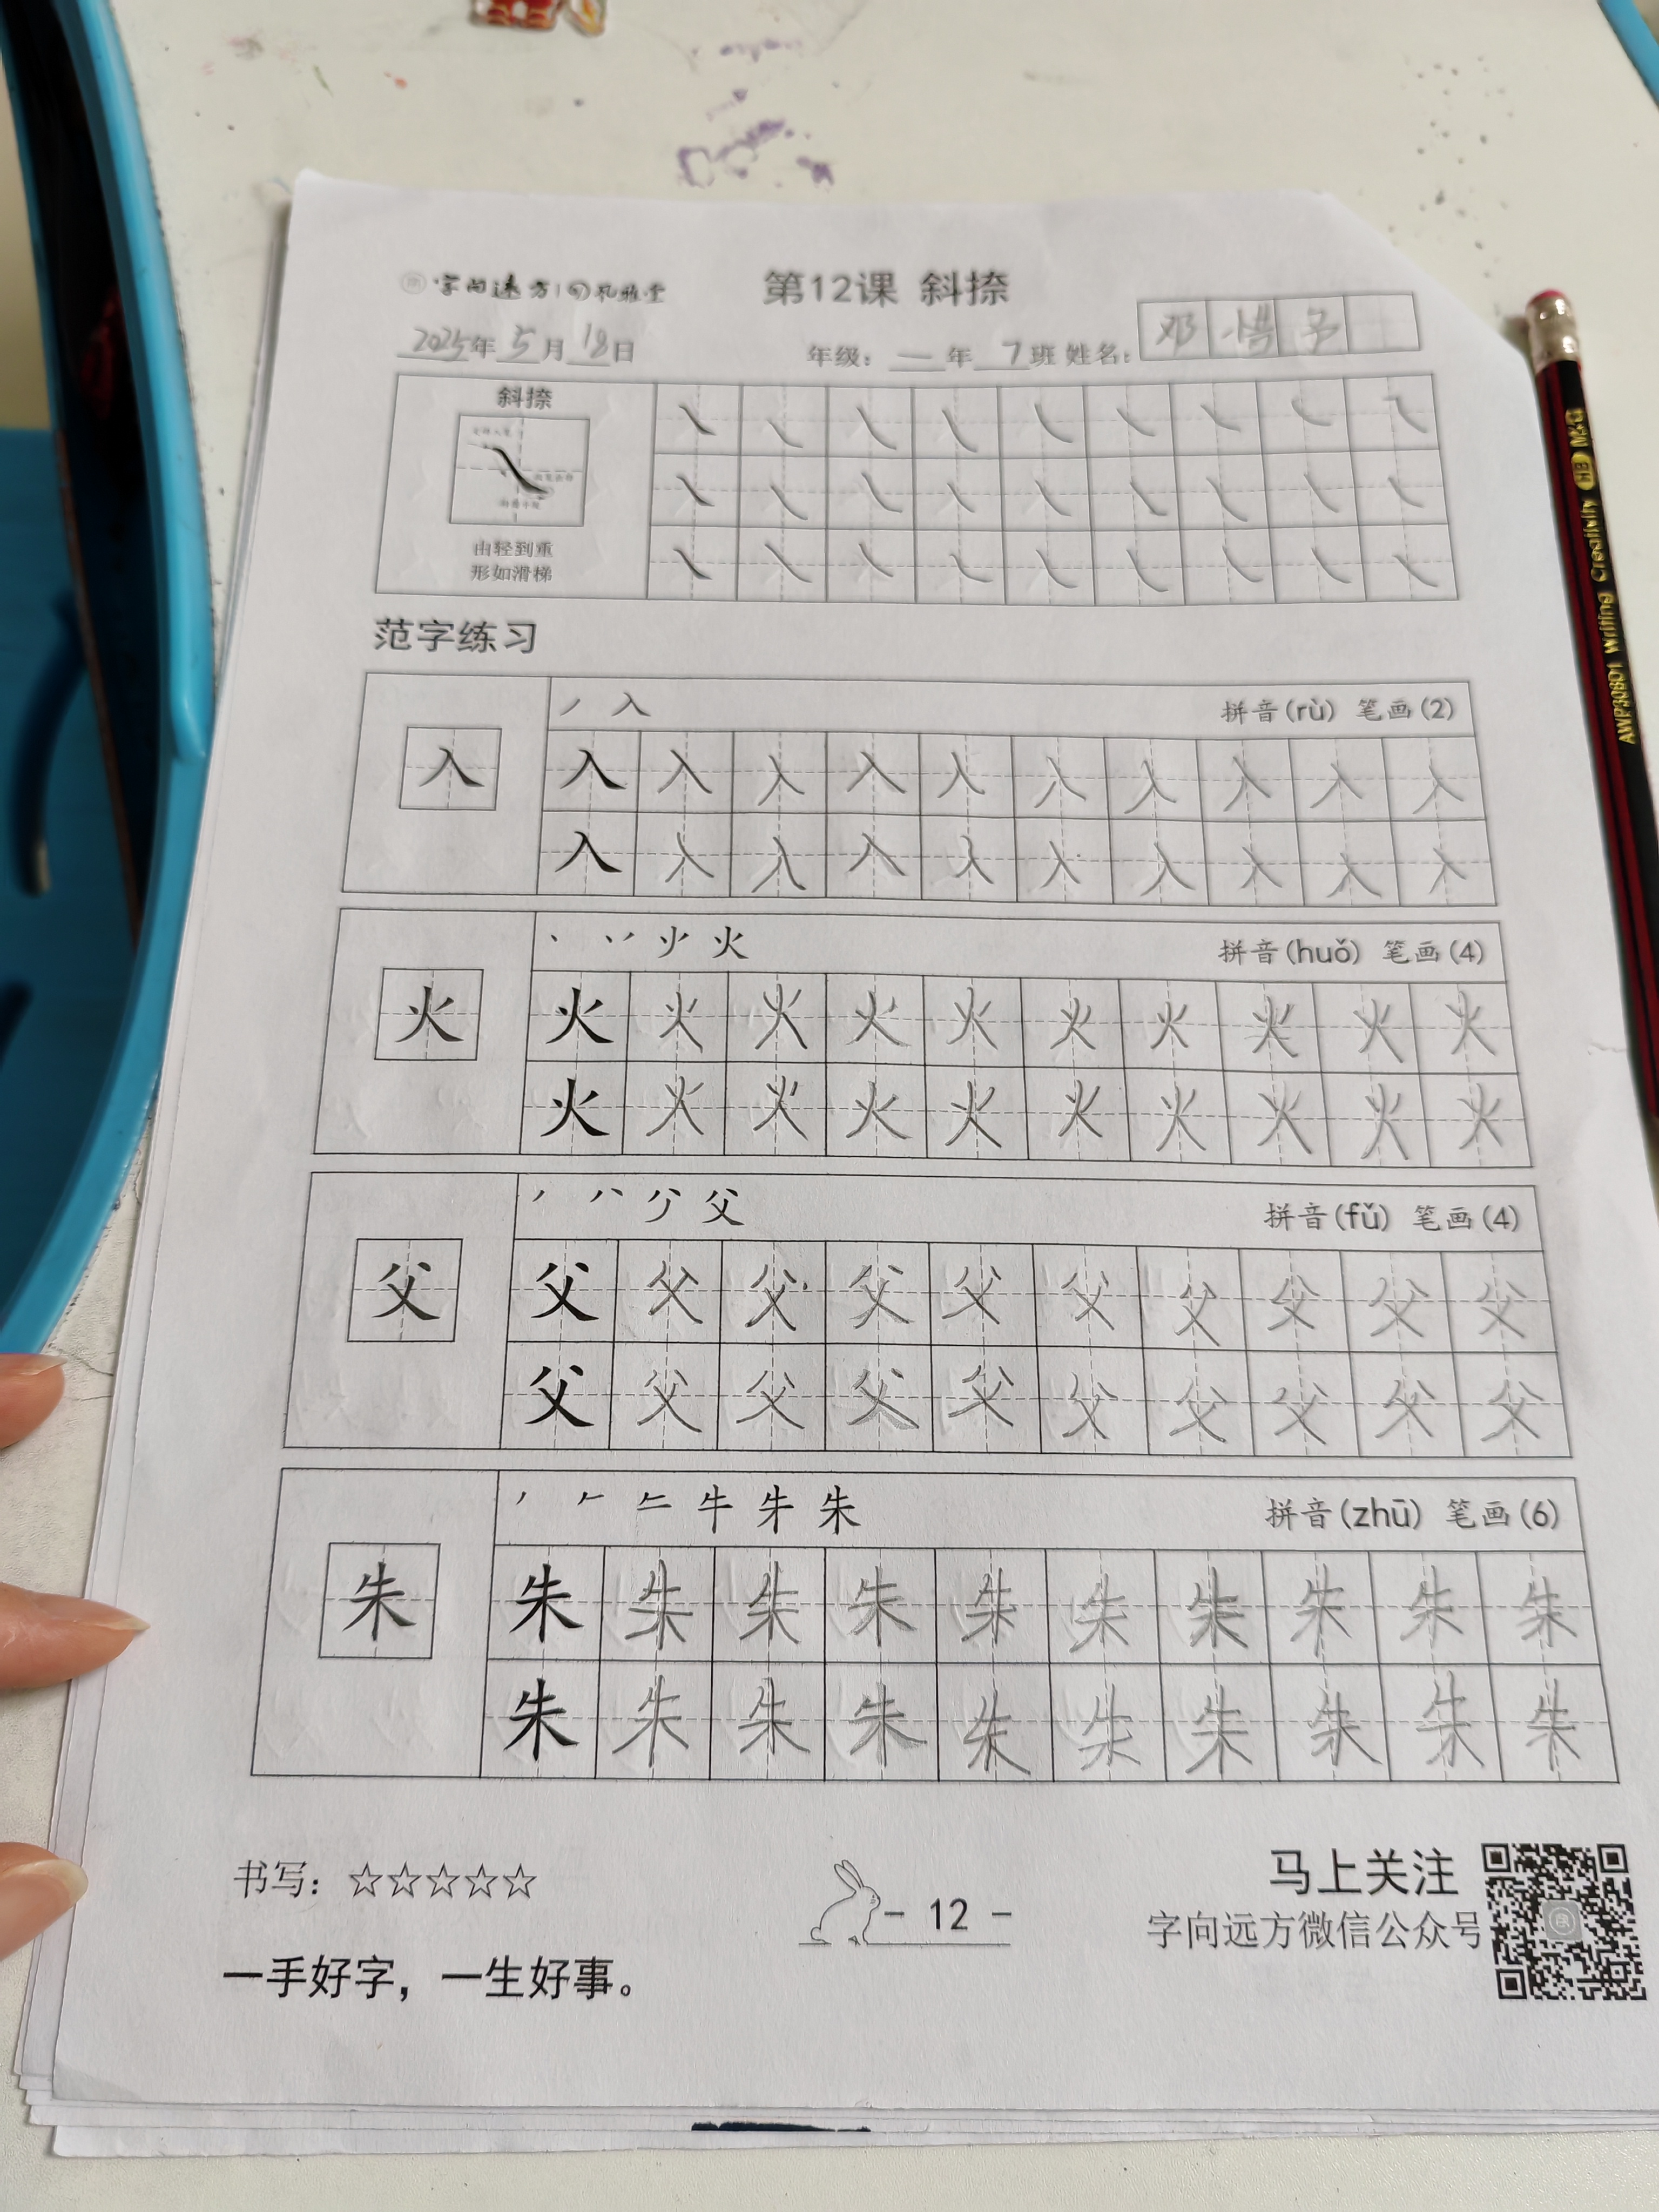 字向远方 孔雅堂
第12课 斜捺
2025年 5月 18日 年级：一年 7班 姓名：邓惜予
斜捺
由轻到重
形如滑梯
范字练习
丿 入 拼音(rù) 笔画(2)
入 入 入 入 入 入 入 入 入 入 入
入 入 入 入 入 入 入 入 入 入
火 拼音(huǒ) 笔画(4)
火 火 火 火 火 火 火 火 火 火 火
火 火 火 火 火 火 火 火 火 火
父 拼音(fǔ) 笔画(4)
父 父 父 父 父 父 父 父 父 父 父
父 父 父 父 父 父 父 父 父 父
牛 朱 拼音(zhū) 笔画(6)
朱 朱 朱 朱 朱 朱 朱 朱 朱 朱 朱
朱 朱 朱 朱 朱 朱 朱 朱 朱 朱
书写：☆☆☆☆☆
- 12 -
马上关注
字向远方微信公众号
一手好字，一生好事。
AWP30801 Writing Creativity M&G